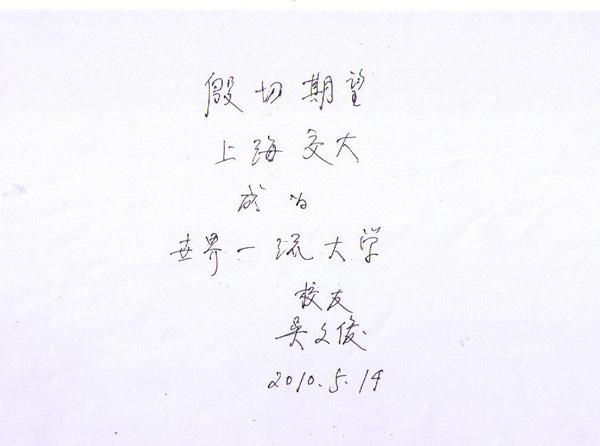 殷切期望
上海交大
成为
世界一流大学
校友
吴文俊
2010.5.14